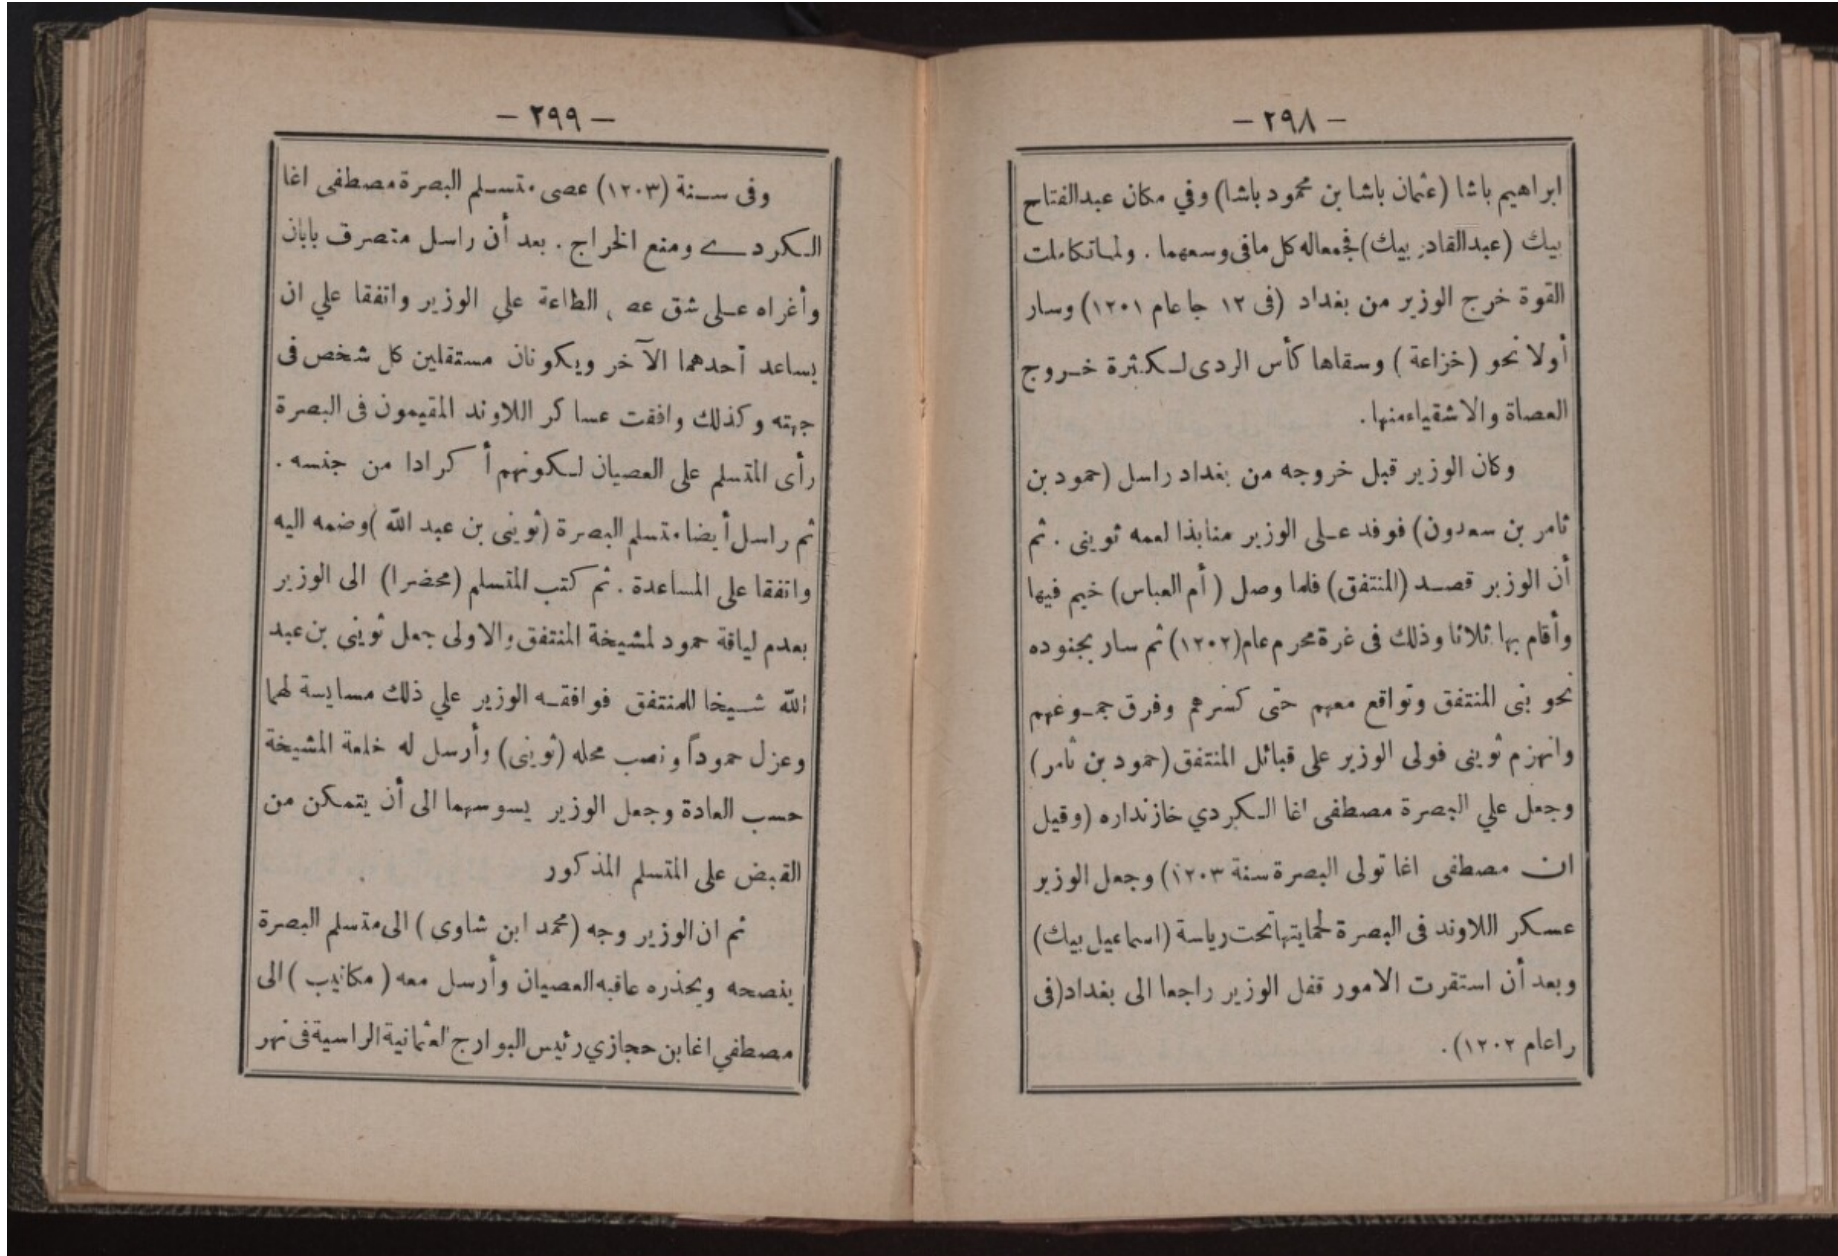 — ٢٩٨ —
ابراهيم باشا (عثمان باشا بن محمود باشا) وفي مكان عبدالفتاح
بيك (عبدالقادر بيك) فجمعاله كل مافى وسعهما . ولما تكاملت
القوة خرج الوزير من بغداد (فى ١٢ جا عام ١٢٠١) وسار
أولا نحو (خزاعة) وسقاها كأس الردى لكثرة خروج
العصاة والاشقياء منها .
وكان الوزير قبل خروجه من بغداد راسل (حمود بن
ثامر بن سعدون) فوفد على الوزير منابذا لعمه ثوينى . ثم
أن الوزير قصد (المنتفق) فلما وصل (أم العباس) خيم فيها
وأقام بها ثلاثا وذلك فى غرة محرم عام (١٢٠٢) ثم سار بجنوده
نحو بنى المنتفق وتواقع معهم حتى كسرهم وفرق جموعهم
وانهزم ثوينى فولى الوزير على قبائل المنتفق (حمود بن ثامر)
وجعل علي البصرة مصطفى اغا الكردي خازنداره (وقيل
ان مصطفى اغا تولى البصرة سنة ١٢٠٣) وجعل الوزير
عسكر اللاوند فى البصرة لحمايتها تحت رياسة (اسماعيل بيك)
وبعد أن استقرت الامور قفل الوزير راجعا الى بغداد (فى
را عام ١٢٠٢) .
— ٢٩٩ —
وفى سنة (١٢٠٣) عصى متسلم البصرة مصطفى اغا
الكردے ومنع الخراج . بعد أن راسل متصرف بابان
وأغراه على شق عصا الطاعة علي الوزير واتفقا علي ان
يساعد أحدهما الآخر ويكونان مستقلين كل شخص فى
جهته وكذلك وافقت عساكر اللاوند المقيمون فى البصرة
رأى المتسلم على العصيان لكونهم أكرادا من جنسه .
ثم راسل أيضا متسلم البصرة (ثوينى بن عبد الله) وضمه اليه
واتفقا على المساعدة . ثم كتب المتسلم (محضرا) الى الوزير
بعدم لياقة حمود لمشيخة المنتفق والاولى جعل ثوينى بن عبد
الله شيخا للمنتفق فوافقه الوزير علي ذلك مسايسة لهما
وعزل حموداً ونصب محله (ثوينى) وأرسل له خلعة المشيخة
حسب العادة وجعل الوزير يسوسهما الى أن يتمكن من
القبض على المتسلم المذكور
ثم ان الوزير وجه (محمد ابن شاوى) الى متسلم البصرة
ينصحه ويحذره عاقبه العصيان وأرسل معه (مكاتيب) الى
مصطفي اغا بن حجازي رئيس البوارج العثمانية الراسية فى نهر